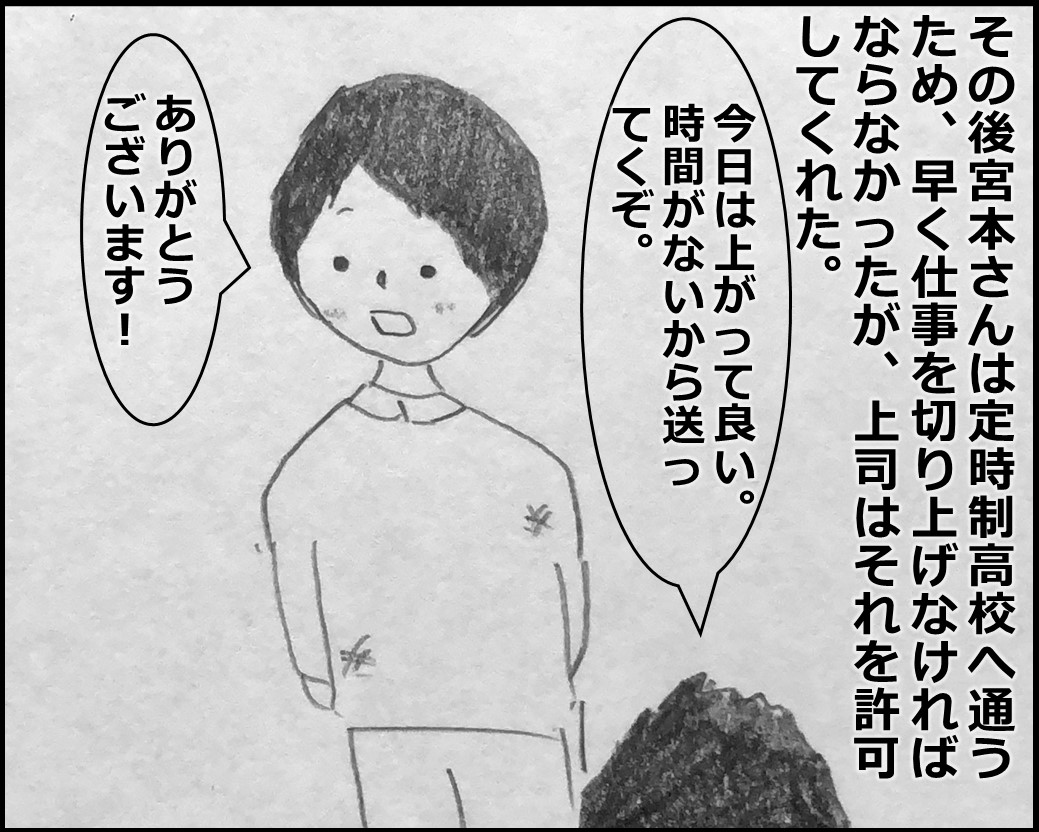 その後宮本さんは定時制高校へ通う
ため、早く仕事を切り上げなければ
ならなかったが、上司はそれを許可
してくれた。
今日は上がって良い。
時間がないから送っ
てくぞ。
ありがとう
ございます！